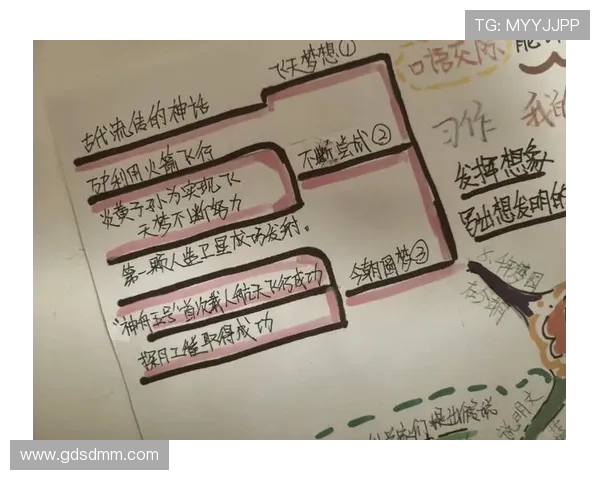 TG: MYYJJPP
飞天梦想①
古代流传的神话
万户利用火箭飞行
不断尝试②
炎黄子孙为实现飞
天梦不断努力
第一颗人造卫星成功发射。
今朝圆梦③
"神舟五号"首次载人航天飞行成功
探月工程取得成功
口语交际
习作
我的
发挥想象
写出想发明的
千年梦圆
在今朝
们提出假说
说明文
www.gdsdmm.com